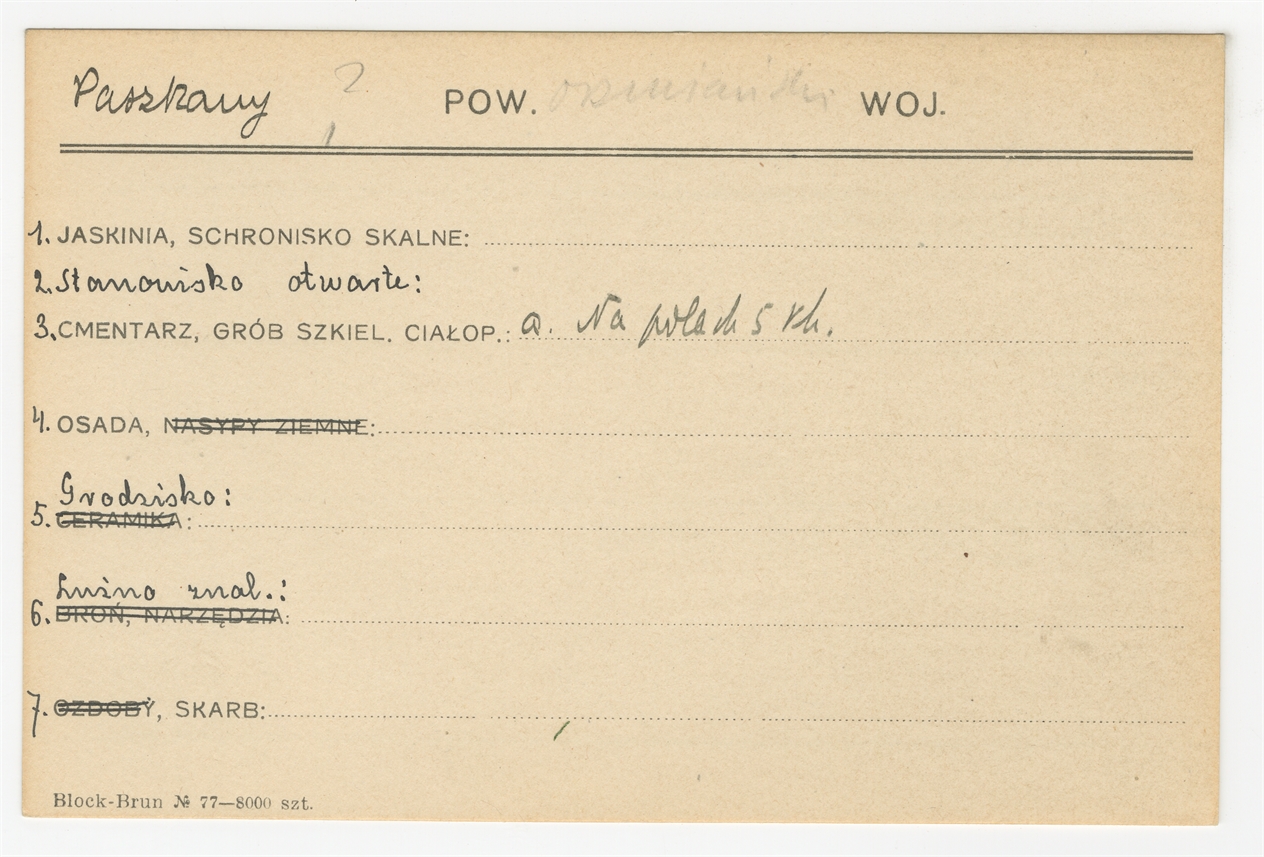 Paszkany ? POW. oszmiański WOJ.
1. JASKINIA, SCHRONISKO SKALNE:
2. Stanowisko otwarte:
3. CMENTARZ, GRÓB SZKIEL. CIAŁOP.: a. Na polach 5 kh.
4. OSADA, NASYPY ZIEMNE:
Grodzisko:
5. CERAMIKA:
Luźno znal.:
6. BROŃ, NARZĘDZIA:
7. OZDOBY, SKARB:
Block-Brun № 77—8000 szt.